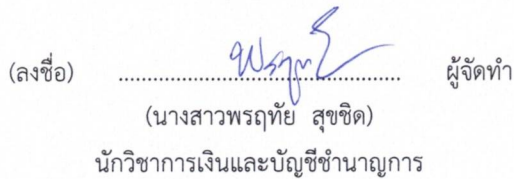 (ลงชื่อ) ........................................ ผู้จัดทำ
(นางสาวพรฤทัย สุขชิด)
นักวิชาการเงินและบัญชีชำนาญการ